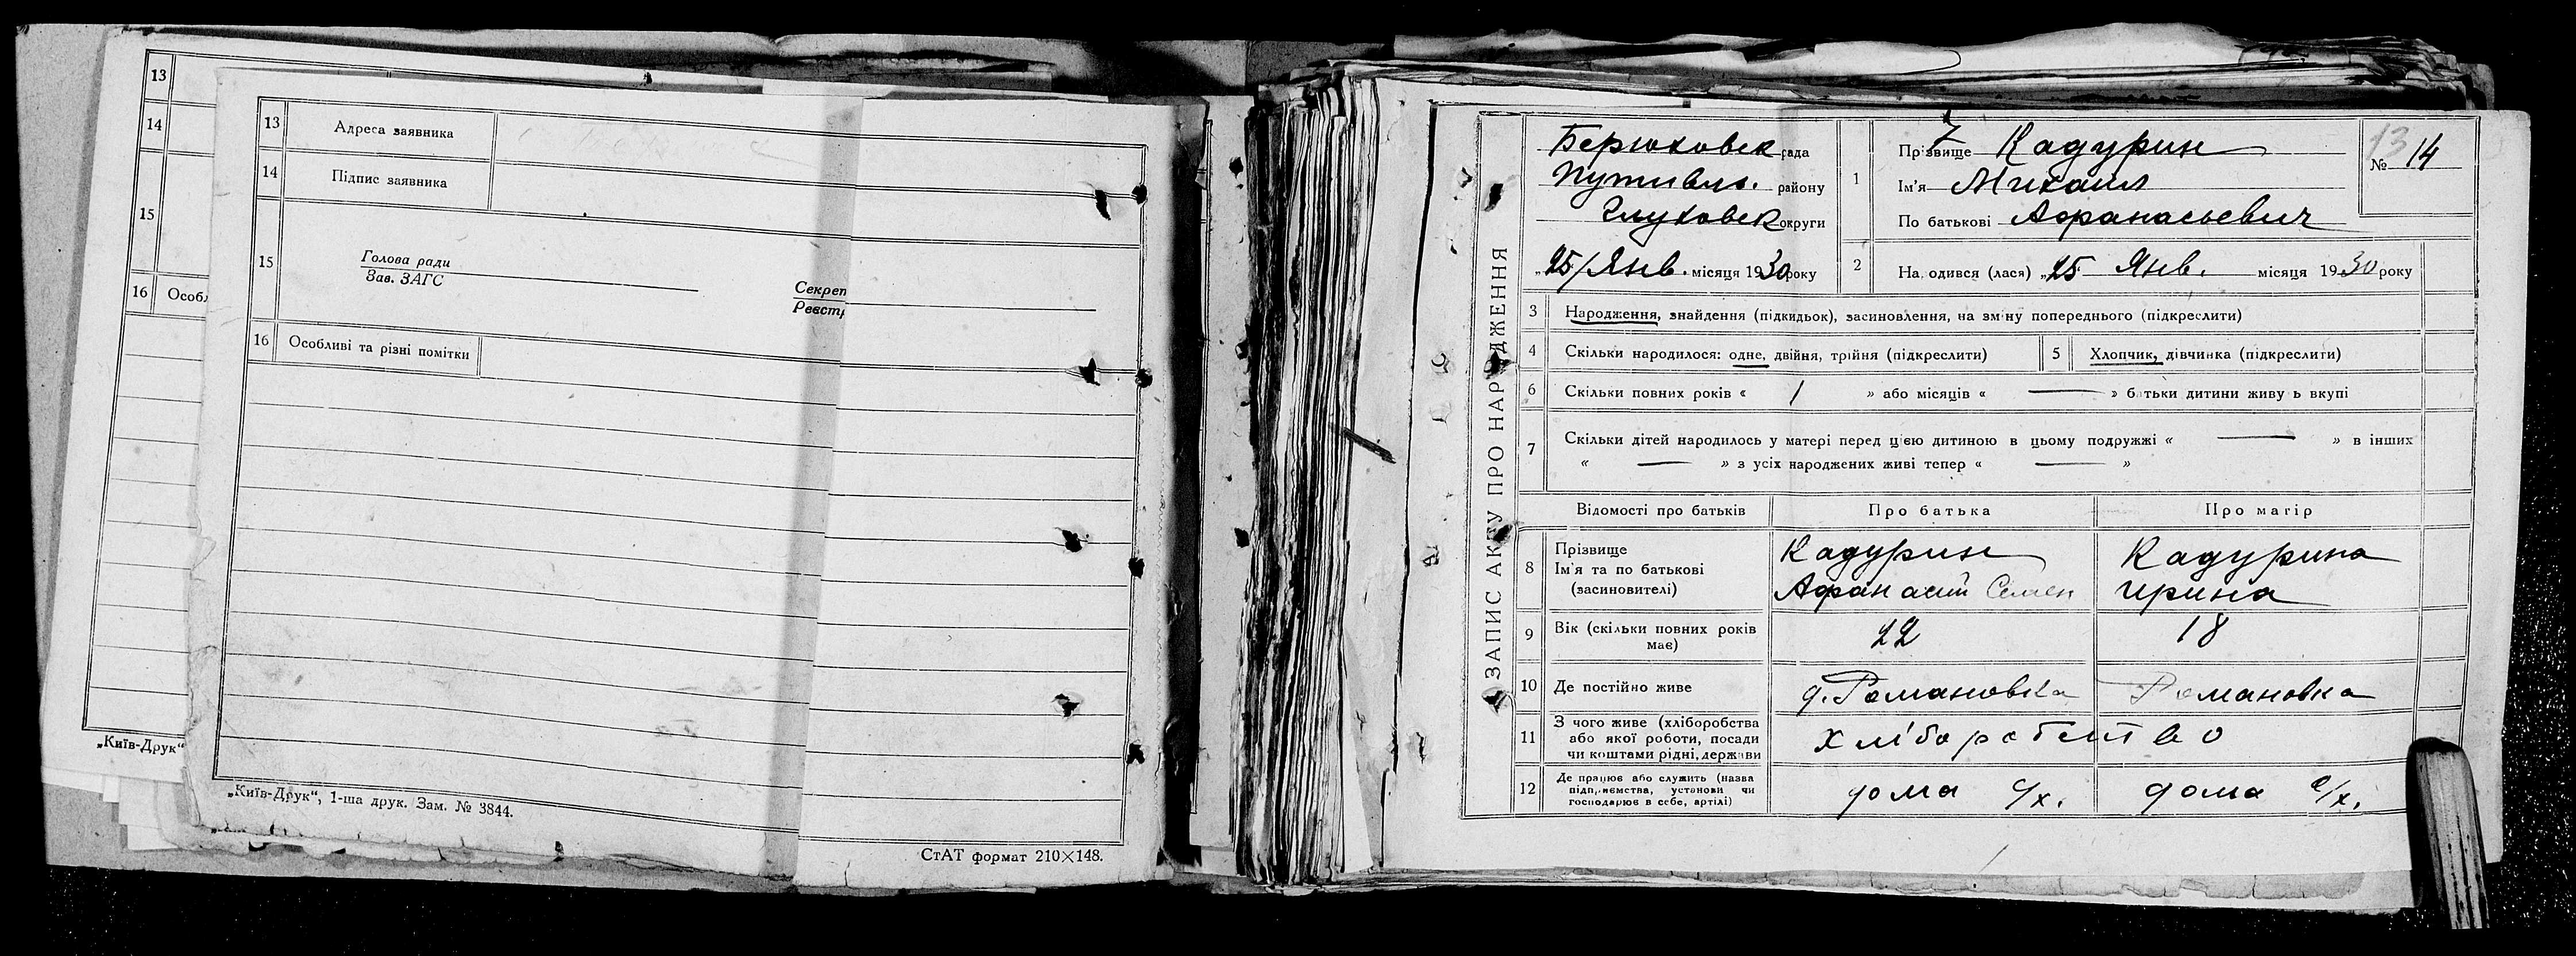 13
14
15
16 Особл
„Київ-Друк“
13 Адреса заявника
14 Підпис заявника
15 Голова ради
Зав. ЗАГС
Секрет
Реєстр
16 Особливі та різні помітки
„Київ-Друк“, 1-ша друк. Зам. № 3844.
СтАТ формат 210×148.
ЗАПИС АКТУ ПРО НАРОДЖЕННЯ
Берюховск рада
Путивль. району
Глуховск округи
„25/Янв. місяця 1930 року
7
1 Прізвище Кадурин
Ім'я Михаил
По батькові Афанасьевич
13
№ 14
2 На одився (лася) „25 Янв. місяця 1930 року
3 Народження, знайдення (підкидьок), засиновлення, на зміну попереднього (підкреслити)
4 Скільки народилося: одне, двійня, трійня (підкреслити)
5 Хлопчик, дівчинка (підкреслити)
6 Скільки повних років « 1 » або місяців « — » батьки дитини живуь вкупі
7 Скільки дітей народилось у матері перед цією дитиною в цьому подружжі « — » в інших
« — » з усіх народжених живі тепер « — »
Відомості про батьків Про батька Про матір
8 Прізвище
Ім'я та по батькові
(засиновителі)
Кадурин
Афанасий Семен
Кадурина
Ирина
9 Вік (скільки повних років
має)
22 18
10 Де постійно живе д. Романовка Романовка
11 З чого живе (хліборобства
або якої роботи, посади
чи коштами рідні, держави
хліборобство
12 Де працює або служить (назва
підприємства, установи чи
господарює в себе, артілі)
дома с/х. дома с/х.